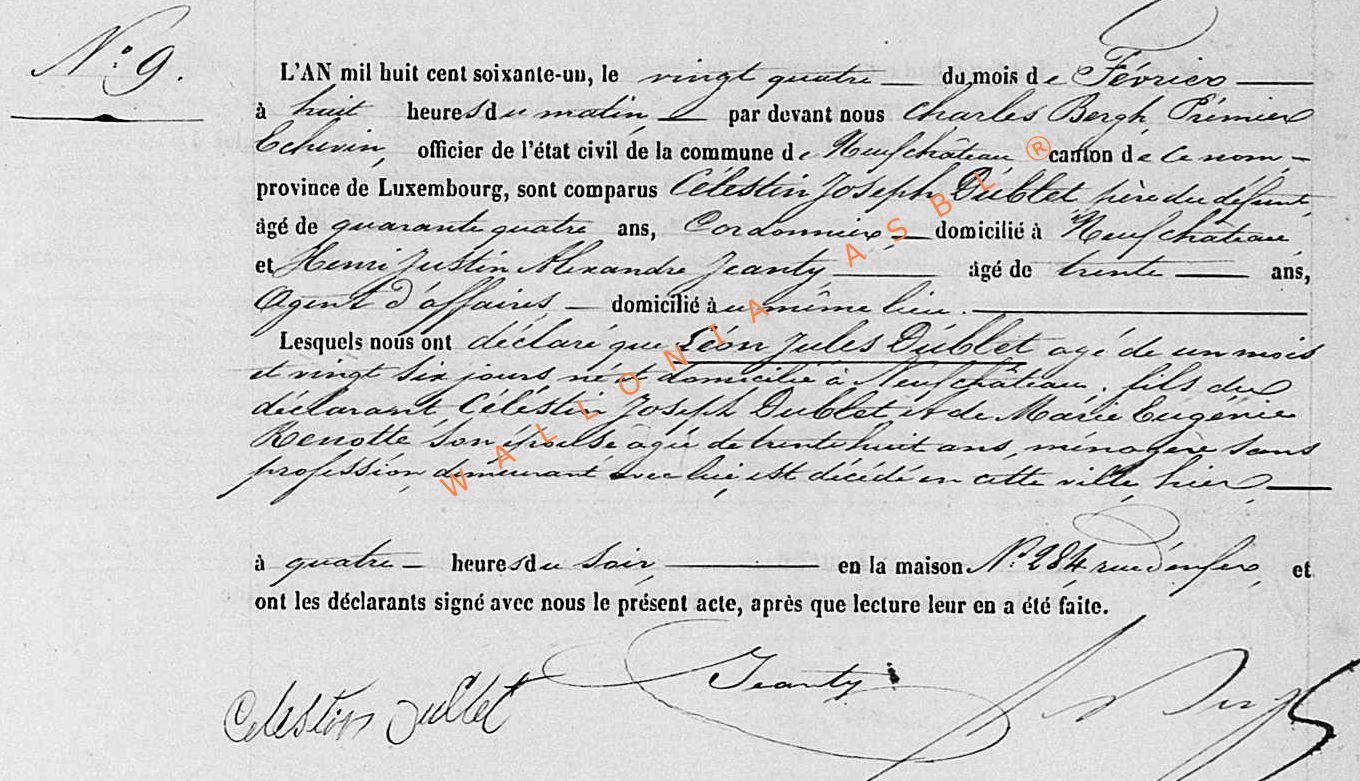 N° 9.
L'AN mil huit cent soixante-un, le vingt quatre du mois de Février
à huit heures du matin par devant nous Charles Bergh, Prémier
Echevin, officier de l'état civil de la commune de Neufchâteau canton de ce nom
province de Luxembourg, sont comparus Célestin Joseph Dublet père du défunt,
âgé de quarante quatre ans, Cordonnier domicilié à Neufchâteau,
et Henri Justin Alexandre Jeanty âgé de trente ans,
Agent d'affaires domicilié au même lieu.
Lesquels nous ont déclaré que Léon Jules Dublet agé de un mois
et vingt six jours, né et domicilié à Neufchâteau, fils du
déclarant Célestin Joseph Dublet et de Marie Eugénie
Renotte son épouse âgée de trente huit ans, ménagère sans
profession, demeurant avec lui, est décédé en cette ville, hier,
à quatre heures du soir, en la maison N° 284, rue d'enfer, et
ont les déclarants signé avec nous le présent acte, après que lecture leur en a été faite.
Celestin Dublet
Jeanty
Bergh
WALLONIA ASBL ®